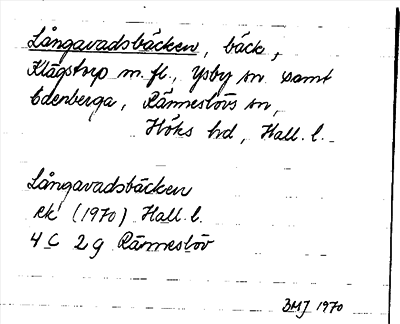 Långavadsbäcken, bäck,
Klägstorp m. fl., Ysby sn samt
Edenberga, Ränneslövs sn,
Höks hd, Hall. l.
Långavadsbäcken
ek (1970) Hall. l.
4 C 2 g Ränneslöv
BMJ 1970